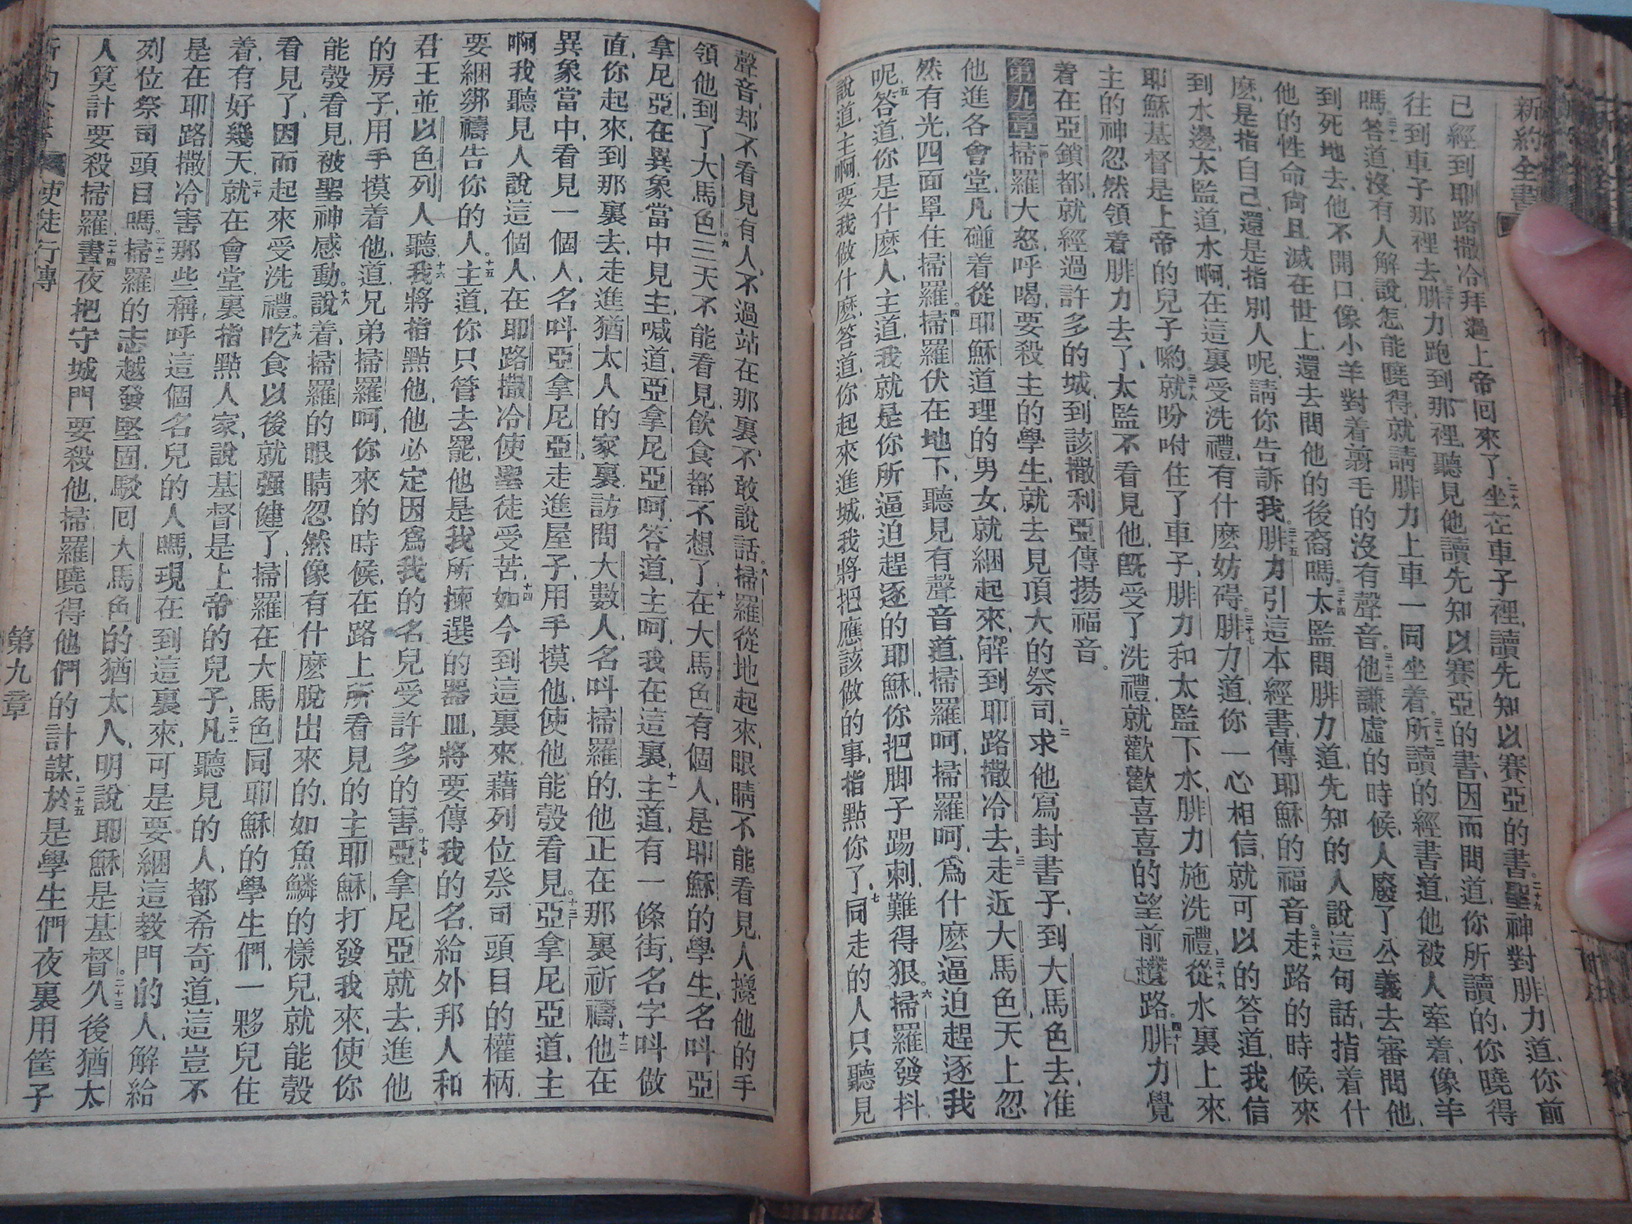 新約全書
已經到耶路撒冷拜過上帝回來了二十八坐在車子裡讀先知以賽亞的書二十九聖神對腓力道你前
往到車子那裡去腓力跑到那裡聽見他讀先知以賽亞的書因而問道你所讀的你曉得
嗎三十一答道沒有人解說怎能曉得就請腓力上車一同坐着三十二所讀的經書道他被人牽着像羊
到死地去他不開口像小羊對着剪毛的沒有聲音三十三他謙虛的時候人廢了公義去審問他
他的性命尙且滅在世上還去問他的後裔嗎三十四太監問腓力道先知的人說這句話指着什
麽是指自己還是指別人呢請你告訴我三十五腓力引這本經書傳耶穌的福音三十六走路的時候來
到水邊太監道水啊在這裏受洗禮有什麽妨碍三十七腓力道你一心相信就可以的答道我信
耶穌基督是上帝的兒子喲三十八就吩咐住了車子腓力和太監下水腓力施洗禮三十九從水裏上來
主的神忽然領着腓力去了太監不看見他旣受了洗禮就歡歡喜喜的望前趲路四十腓力覺
着在亞鎖都就經過許多的城到該撒利亞傳揚福音。
第九章一掃羅大怒呼喝要殺主的學生就去見頂大的祭司二求他寫封書子到大馬色去准
他進各會堂凡碰着從耶穌道理的男女就綑起來解到耶路撒冷去三走近大馬色天上忽
然有光四面罩住掃羅四掃羅伏在地下聽見有聲音道掃羅呵掃羅呵爲什麽逼迫趕逐我
呢五答道你是什麽人主道我就是你所逼迫趕逐的耶穌你把脚子踢刺難得狠六掃羅發抖
說道主啊要我做什麽答道你起來進城我將把應該做的事指點你了七同走的人只聽見
聲音却不看見有人不過站在那裏不敢說話八掃羅從地起來眼睛不能看見人攙他的手
領他到了大馬色九三天不能看見飲食都不想了十在大馬色有個人是耶穌的學生名呌亞
拿尼亞在異象當中見主喊道亞拿尼亞呵答道主呵我在這裏十一主道有一條街名字呌做
直你起來到那裏去走進猶太人的家裏訪問大數人名呌掃羅的他正在那裏祈禱十二他在
異象當中看見一個人名呌亞拿尼亞走進屋子用手摸他使他能彀看見十三亞拿尼亞道主
啊我聽見人說這個人在耶路撒冷使聖徒受苦十四如今到這裏來藉列位祭司頭目的權柄
要綑綁禱告你的人十五主道你只管去罷他是我所揀選的器皿將要傳我的名給外邦人和
君王並以色列人聽十六我將指點他他必定因爲我的名兒受許多的害十七亞拿尼亞就去進他
的房子用手摸着他道兄弟掃羅呵你來的時候在路上所看見的主耶穌打發我來使你
能彀看見被聖神感動十八說着掃羅的眼睛忽然像有什麽脫出來的如魚鱗的樣兒就能彀
看見了因而起來受洗禮十九吃食以後就强健了掃羅在大馬色同耶穌的學生們一夥兒住
着有好幾天二十就在會堂裏指點人家說基督是上帝的兒子二十一凡聽見的人都希奇道這豈不
是在耶路撒冷害那些稱呼這個名兒的人嗎現在到這裏來可是要綑這敎門的人解給
列位祭司頭目嗎二十二掃羅的志越發堅固駁囘大馬色的猶太人明說耶穌是基督二十三久後猶太
人筭計要殺掃羅二十四晝夜把守城門要殺他掃羅曉得他們的計謀二十五於是學生們夜裏用筐子
使徒行傳 第九章